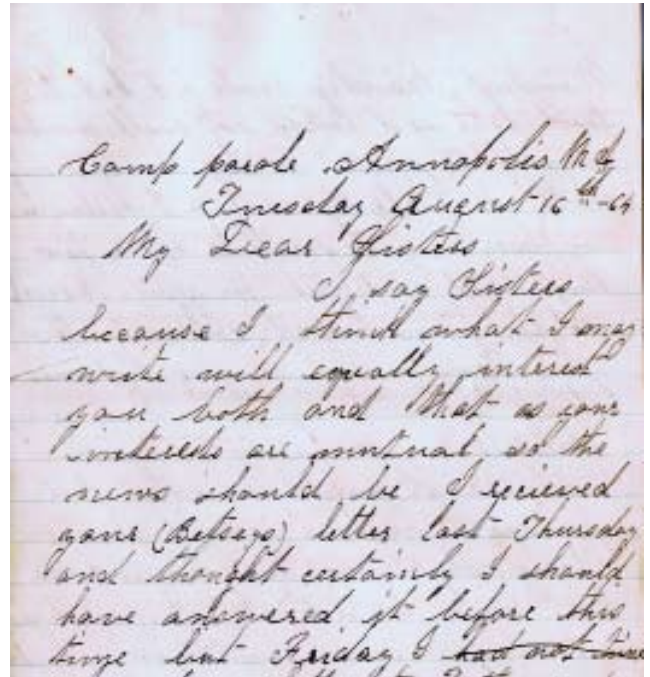 Camp parole. Annapolis Md
Tuesday August 16th-64
My Dear Sisters
I say Sisters
because I think what I may
write will equally interest
you both and that as your
interests are mutual so the
news should be I recieved
your (Betseys) letter last Thursday
and thought certainly I should
have answered it before this
time but Friday I had not time